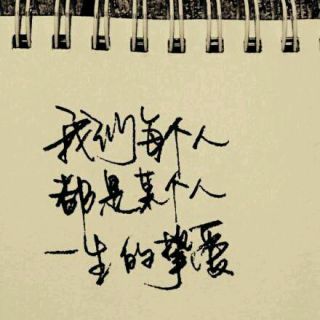 我们每个人
都是某个人
一生的挚爱